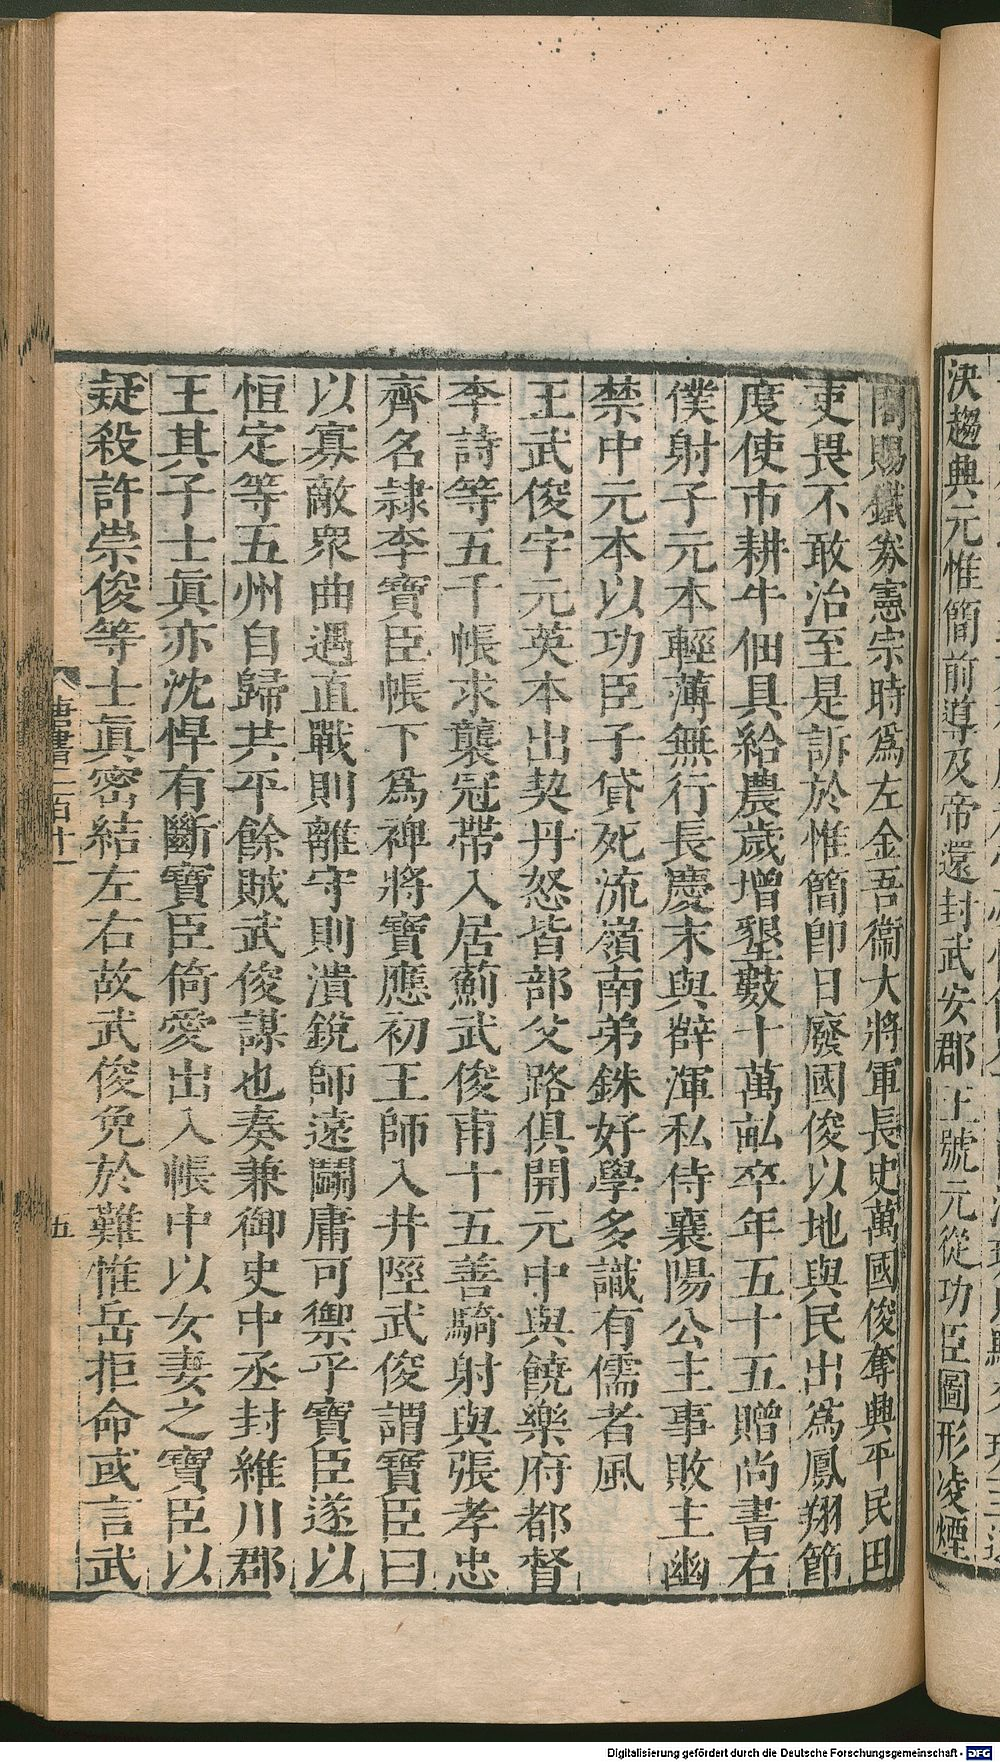 決趨興元惟簡前導及帝還封武安郡王號元從功臣圖形凌煙
閣賜鐵券憲宗時爲左金吾衞大將軍長史萬國俊奪興平民田
吏畏不敢治至是訴於惟簡卽日廢國俊以地與民出爲鳳翔節
度使市耕牛佃具給農歲增墾數十萬畝卒年五十五贈尚書右
僕射子元本輕薄無行長慶末與薛渾私侍襄陽公主事敗主幽
禁中元本以功臣子貸死流嶺南弟銖好學多識有儒者風
王武俊字元英本出契丹怒皆部父路俱開元中與饒樂府都督
李詩等五千帳求襲冠帶入居薊武俊甫十五善騎射與張孝忠
齊名隷李寶臣帳下爲裨將寶應初王師入井陘武俊謂寶臣曰
以寡敵衆曲遇直戰則離守則潰銳師遠鬭庸可禦乎寶臣遂以
恒定等五州自歸共平餘賊武俊謀也奏兼御史中丞封維川郡
王其子士眞亦沈悍有斷寶臣倚愛出入帳中以女妻之寶臣以
疑殺許崇俊等士眞密結左右故武俊免於難惟岳拒命或言武
唐書二百十一
五
Digitalisierung gefördert durch die Deutsche Forschungsgemeinschaft - DFG